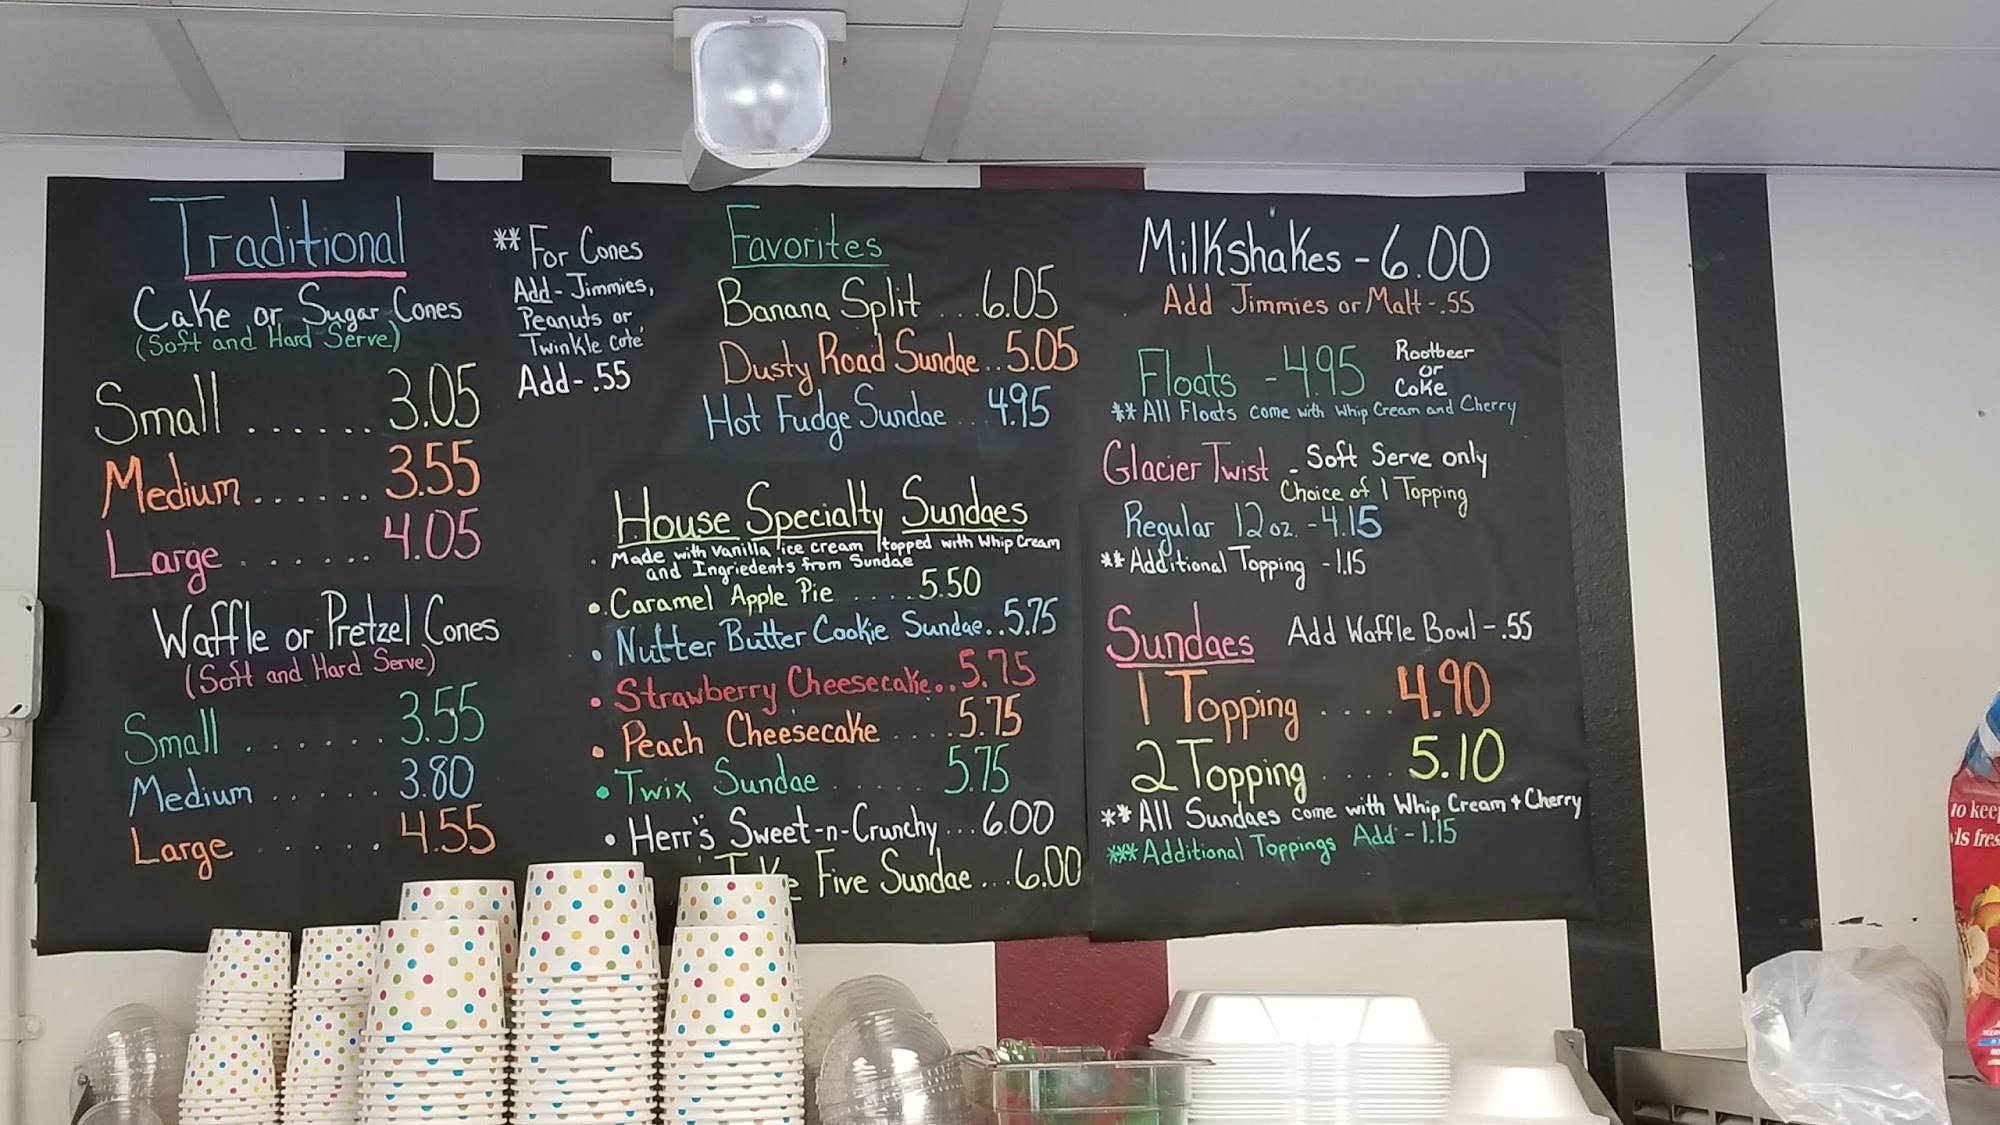 Traditional
Cake or Sugar Cones
(Soft and Hard Serve)
Small ...... 3.05
Medium ...... 3.55
Large ....... 4.05
Waffle or Pretzel Cones
(Soft and Hard Serve)
Small ....... 3.55
Medium ...... 3.80
Large ...... 4.55
** For Cones
Add - Jimmies,
Peanuts or
Twinkle cote,
Add - .55
Favorites
Banana Split ... 6.05
Dusty Road Sundae .. 5.05
Hot Fudge Sundae ... 4.95
House Specialty Sundaes
. Made with Vanilla ice cream topped with Whip Cream
and Ingriedents from Sundae
• Caramel Apple Pie .... 5.50
• Nutter Butter Cookie Sundae.. 5.75
• Strawberry Cheesecake.. 5.75
• Peach Cheesecake .... 5.75
• Twix Sundae ...... 5.75
• Herr's Sweet-n-Crunchy ... 6.00
Five Sundae ... 6.00
Milkshakes - 6.00
Add Jimmies or Malt - .55
Floats - 4.95
Rootbeer
or
Coke
** All Floats come with Whip Cream and Cherry
Glacier Twist - Soft Serve only
Choice of 1 Topping
Regular 12 oz. - 4.15
** Additional Topping - 1.15
Sundaes Add Waffle Bowl - .55
1 Topping .... 4.90
2 Topping .... 5.10
** All Sundaes come with Whip Cream + Cherry
*** Additional Toppings Add - 1.15
to keep